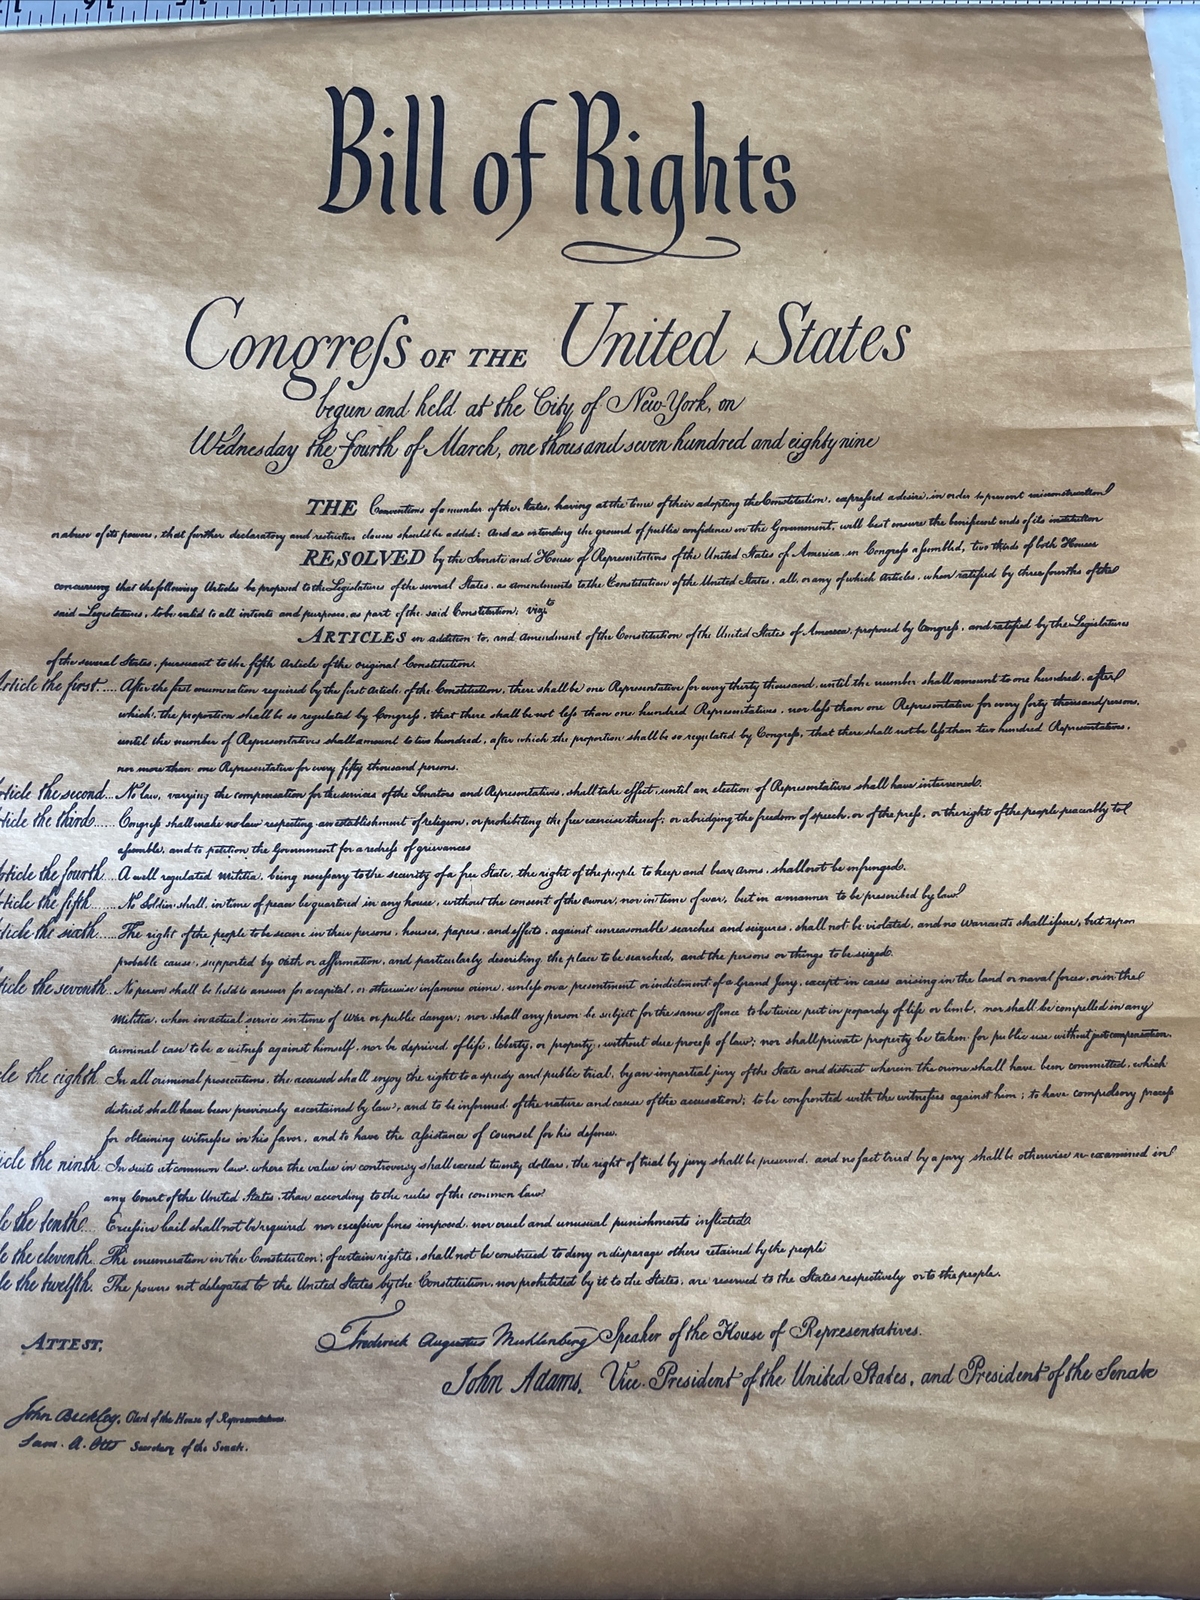 Bill of Rights
Congreſs OF THE United States
begun and held at the City of New-York, on
Wednesday the Fourth of March, one thousand seven hundred and eighty nine
THE Conventions of a number of the States, having at the time of their adopting the Constitution, expreſsed a desire, in order to prevent misconstruction
or abuse of its powers, that further declaratory and restrictive clauses should be added: And as extending the ground of public confidence in the Government, will best ensure the beneficent ends of its institution
RESOLVED by the Senate and House of Representatives of the United States of America, in Congreſs aſsembled, two thirds of both Houses
concurring that the following Articles be proposed to the Legislatures of the several States, as amendments to the Constitution of the United States, all, or any of which Articles, when ratified by three fourths of the
said Legislatures, to be valid to all intents and purposes, as part of the said Constitution, vizt
ARTICLES in addition to, and Amendment of the Constitution of the United States of America, proposed by Congreſs, and ratified by the Legislatures
of the several States, pursuant to the fifth Article of the original Constitution.
Article the first..... After the first enumeration required by the first Article, of the Constitution, there shall be one Representative for every thirty thousand, until the number shall amount to one hundred, after
which, the proportion shall be so regulated by Congreſs, that there shall be not leſs than one hundred Representatives, nor leſs than one Representative for every forty thousand persons,
until the number of Representatives shall amount to two hundred, after which the proportion shall be so regulated by Congreſs, that there shall not be leſs than two hundred Representatives,
nor more than one Representative for every fifty thousand persons.
rticle the second... No law, varying the compensation for the services of the Senators and Representatives, shall take effect, until an election of Representatives shall have intervened.
ticle the third...... Congreſs shall make no law respecting an establishment of religion, or prohibiting the free exercise thereof, or abridging the freedom of speech, or of the preſs, or the right of the people peacerbly to
aſsemble, and to petition the Government for a redreſs of grievances
rticle the fourth... A well regulated Militia, being neceſsary to the security of a free State, the right of the people to keep and bear Arms, shall not be infringed.
ticle the fifth..... No Soldier shall, in time of peace be quartered in any house, without the consent of the Owner, nor in time of war, but in a manner to be prescribed by law.
ticle the sixth..... The right of the people to be secure in their persons, houses, papers, and effects, against unreasonable searches and seizures, shall not be violated, and no Warrants shall iſsue, but upon
probable cause, supported by Oath or affirmation, and particularly describing the place to be searched, and the persons or things to be seized.
ticle the seventh.. No person shall be held to answer for a capital, or otherwise infamous crime, unleſs on a presentment or indictment of a Grand Jury, except in cases arising in the land or naval forces, or in the
Militia, when in actual service in time of War or public danger; nor shall any person be subject for the same offence to be twice put in jeopardy of life or limb, nor shall be compelled in any
criminal case to be a witneſs against himself, nor be deprived of life, liberty, or property, without due proceſs of law; nor shall private property be taken for public use without just compensation.
cle the eighth. In all criminal prosecutions, the accused shall enjoy the right to a speedy and public trial, by an impartial jury of the State and district wherein the crime shall have been committed, which
district shall have been previously ascertained by law, and to be informed of the nature and cause of the accusation; to be confronted with the witneſses against him; to have compulsory proceſs
for obtaining witneſses in his favor, and to have the aſsistance of counsel for his defence.
icle the ninth. In suits at common law, where the value in controversy shall exceed twenty dollars, the right of trial by jury shall be preserved, and no fact tried by a jury shall be otherwise re-examined in
any Court of the United States, than according to the rules of the common law.
le the tenth... Exceſsive bail shall not be required nor exceſsive fines imposed, nor cruel and unusual punishments inflicted.
le the eleventh. The enumeration in the Constitution, of certain rights, shall not be construed to deny or disparage others retained by the people
le the twelfth. The powers not delegated to the United States by the Constitution, nor prohibited by it to the States, are reserved to the States respectively or to the people.
Frederick Augustus Muhlenberg Speaker of the House of Representatives.
ATTEST,
John Adams, Vice-President of the United States, and President of the Senate
John Beckley, Clerk of the House of Representatives.
Sam. A. Otis Secretary of the Senate.